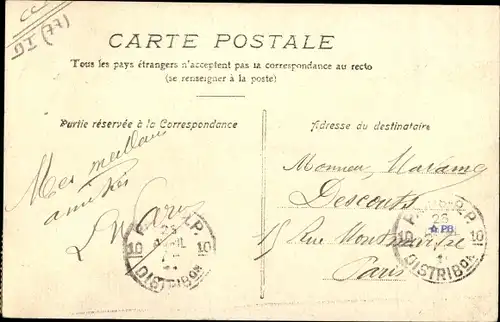 DI (77)
CARTE POSTALE
Tous les pays étrangers n'acceptent pas la correspondance au recto
(se renseigner à la poste)
Partie réservée à la Correspondance
Adresse du destinataire
Mes meilleures
amitiés
Monsieur
Descouts
15 Rue Montmartre
Paris
PARIS R.P.
25
AVRIL
10 10
DISTRIBON
PARIS R.P.
25
PB
10 10
DISTRIBON